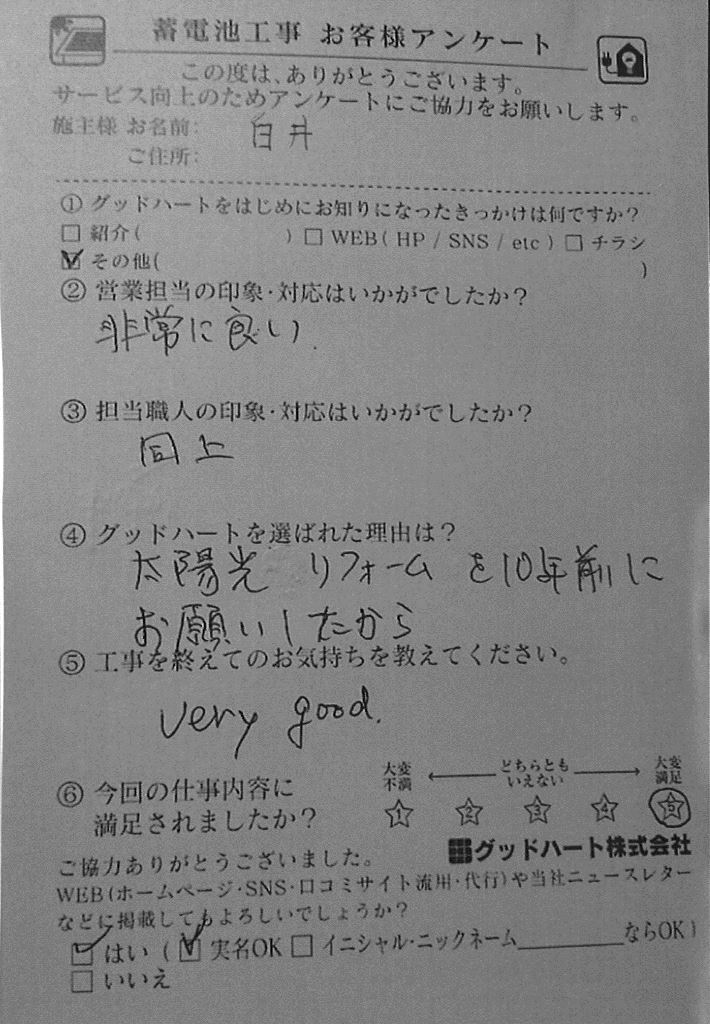 蓄電池工事 お客様アンケート
この度は、ありがとうございます。
サービス向上のためアンケートにご協力をお願いします。
施主様 お名前: 白井
ご住所:
① グッドハートをはじめにお知りになったきっかけは何ですか?
□ 紹介( ) □ WEB( HP / SNS / etc ) □ チラシ
☑ その他( )
② 営業担当の印象・対応はいかがでしたか?
非常に良い.
③ 担当職人の印象・対応はいかがでしたか?
同上
④ グッドハートを選ばれた理由は?
太陽光 リフォームを10年前に
お願いしたから
⑤ 工事を終えてのお気持ちを教えてください。
very good.
⑥ 今回の仕事内容に
満足されましたか?
大変不満 ← どちらともいえない → 大変満足
1 2 3 4 5
グッドハート株式会社
ご協力ありがとうございました。
WEB(ホームページ・SNS・口コミサイト流用・代行)や当社ニュースレター
などに掲載してもよろしいでしょうか?
☑ はい ( ☑ 実名OK □ イニシャル・ニックネーム________ならOK )
□ いいえ